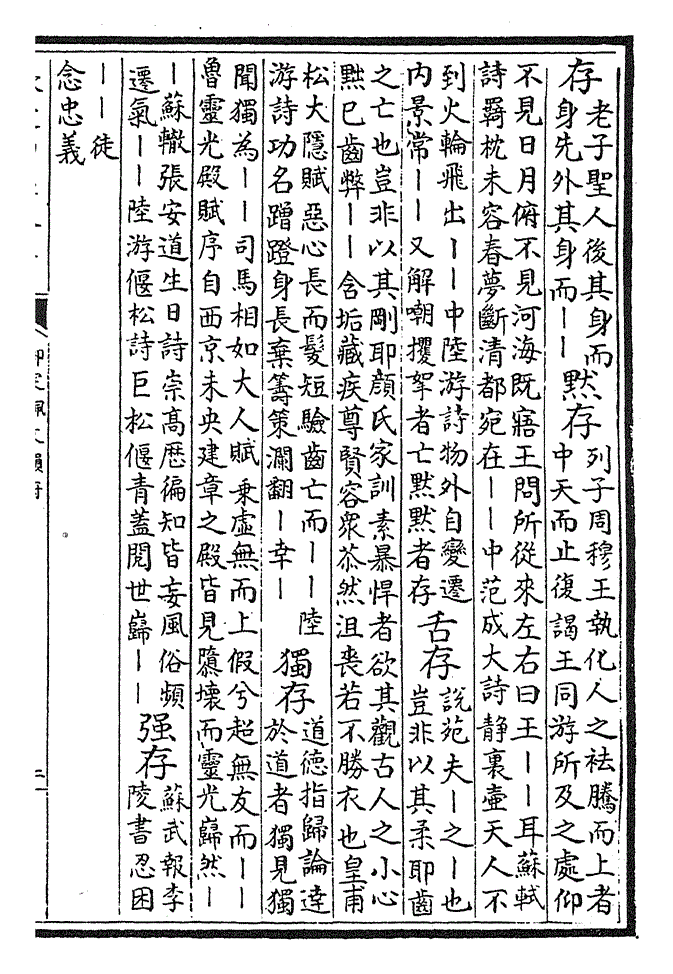 存
老子聖人後其身而
身先外其身而丨丨
黙存
列子周穆王執化人之袪騰而上者
中天而止復謁王同游所及之處仰
不見日月俯不見河海既寤王問所從來左右曰王丨丨耳蘇軾
詩羇枕未容春夢斷清都宛在丨丨中范成大詩静裏壷天人不
到火輪飛出丨丨中陸游詩物外自變遷
内景常丨丨又解嘲攫拏者亡黙黙者存
舌存
說苑夫丨之丨也
豈非以其柔耶齒
之亡也豈非以其剛耶顔氏家訓素暴悍者欲其觀古人之小心
黜已齒弊丨丨含垢藏疾尊賢容衆苶然沮喪若不勝衣也皇甫
松大隱賦惡心長而髮短驗齒亡而丨丨陸
游詩功名蹭蹬身長棄籌策瀾翻丨幸丨
獨存
道德指歸論達
於道者獨見獨
聞獨為丨丨司馬相如大人賦乘虛無而上假兮超無友而丨丨
魯靈光殿賦序自西京未央建章之殿皆見隳壞而靈光巋然丨
丨蘇轍張安道生日詩崇髙歴徧知皆妄風俗頻
遷氣丨丨陸游偃松詩巨松偃青蓋閲世巋丨丨
强存
蘇武報李
陵書忍困
丨丨徒
念忠義